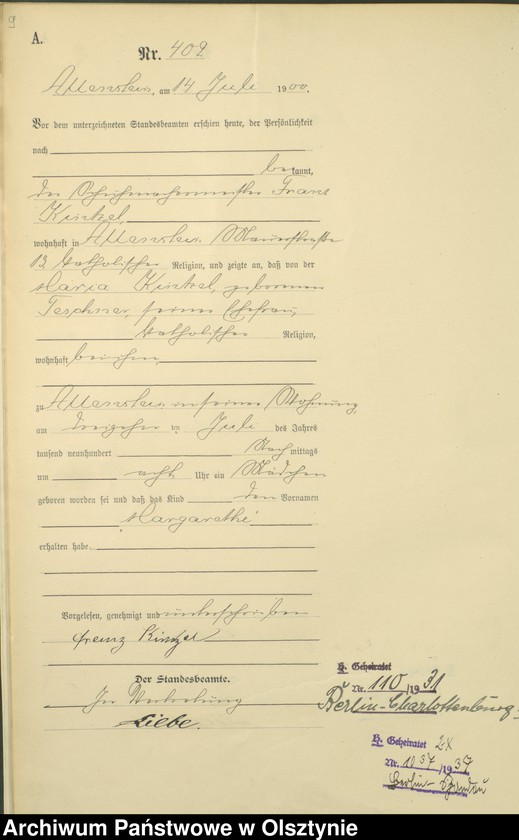 9
A.
Nr. 402
Allenstein, am 14 Juli 1900.
Vor dem unterzeichneten Standesbeamten erschien heute, der Persönlichkeit
nach
bekannt,
der Schuhmachermeister Franz
Kintzel,
wohnhaft in Allenstein, Mauerstraße
13, katholischer Religion, und zeigte an, daß von der
Maria Kintzel, geborenen
Teschner, seiner Ehefrau,
katholischer Religion,
wohnhaft bei ihm,
zu Allenstein in seiner Wohnung
am dreizehn ten Juli des Jahres
tausend neunhundert Nachmittags
um acht Uhr ein Mädchen
geboren worden sei und daß das Kind den Vornamen
Margarethe
erhalten habe.
Vorgelesen, genehmigt und unterschrieben
Franz Kintzel
Der Standesbeamte.
In Vertretung
Liebe.
H. Geheiratet
Nr. 110/1931
Berlin-Charlottenburg
H. Geheiratet 2x
Nr. 1037/1937
Berlin-Spandau
Archiwum Państwowe w Olsztynie